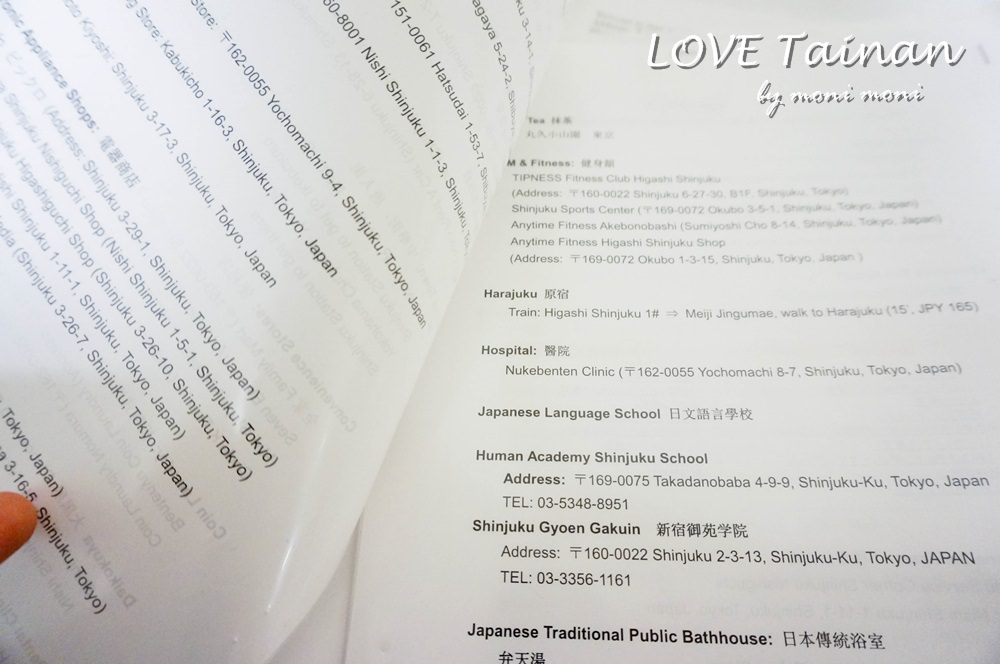 LOVE Tainan
by moni moni
Store: 〒162-0055 Yochomachi 9-4, Shinjuku, Tokyo, Japan
Store: Kabukicho 1-16-3, Shinjuku, Tokyo, Japan
Shinjuku 3-17-3, Shinjuku, Tokyo, Japan
Appliance Shops: 電器商店
(Address: Shinjuku 3-29-1, Shinjuku, Tokyo, Japan)
Shinjuku Nishiguchi Shop (Nishi Shinjuku 1-5-1, Shinjuku, Tokyo)
Higashiguchi Shop (Shinjuku 3-26-10, Shinjuku, Tokyo)
Shinjuku 1-11-1, Shinjuku, Tokyo, Japan)
(Shinjuku 3-26-7, Shinjuku, Tokyo, Japan)
Tokyo, Japan)
3-16-5, Shinjuku, Tokyo)
60-8001 Nishi Shinjuku 1-1-3, Shinjuku,
151-0061 Hatsudai 1-53-7,
5-24-2,
Tea 抹茶
丸久小山園 東京
M & Fitness: 健身館
TIPNESS Fitness Club Higashi Shinjuku
(Address: 〒160-0022 Shinjuku 6-27-30, B1F, Shinjuku, Tokyo)
Shinjuku Sports Center (〒169-0072 Okubo 3-5-1, Shinjuku, Tokyo, Japan)
Anytime Fitness Akebonobashi (Sumiyoshi Cho 8-14, Shinjuku, Tokyo, Japan)
Anytime Fitness Higashi Shinjuku Shop
(Address: 〒169-0072 Okubo 1-3-15, Shinjuku, Tokyo, Japan )
Harajuku 原宿
Train: Higashi Shinjuku 1# ⇒ Meiji Jingumae, walk to Harajuku (15', JPY 165)
Hospital: 醫院
Nukebenten Clinic (〒162-0055 Yochomachi 8-7, Shinjuku, Tokyo, Japan)
Japanese Language School 日文語言學校
Human Academy Shinjuku School
Address: 〒169-0075 Takadanobaba 4-9-9, Shinjuku-Ku, Tokyo, Japan
TEL: 03-5348-8951
Shinjuku Gyoen Gakuin 新宿御苑学院
Address: 〒160-0022 Shinjuku 2-3-13, Shinjuku-Ku, Tokyo, JAPAN
TEL: 03-3356-1161
Japanese Traditional Public Bathhouse: 日本傳統浴室
弁天湯